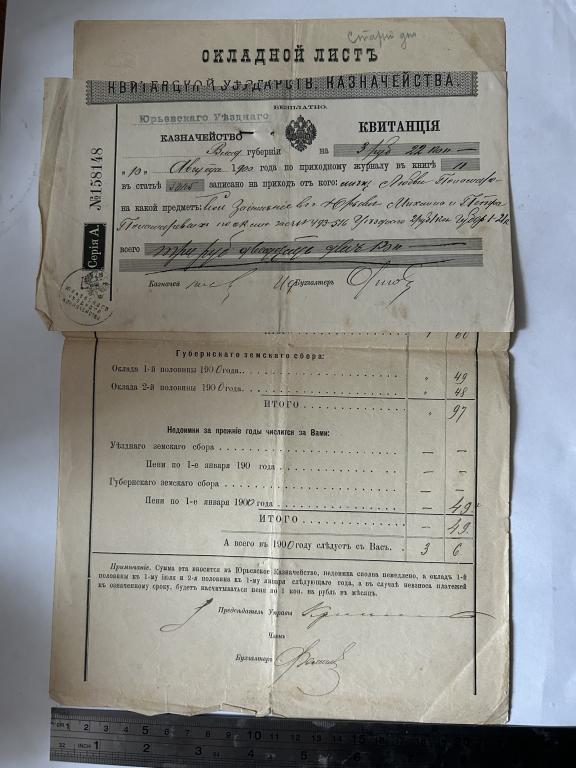 Старый
ОКЛАДНОЙ ЛИСТЪ
КВИТАНЦІЯ УѢЗДА ГОСУДАРСТВ. КАЗНАЧЕЙСТВА.
БЕЗПЛАТНО.
Юрьевскаго Уѣзднаго
КАЗНАЧЕЙСТВО
КВИТАНЦІЯ
Влад губерніи на 3 руб 22 коп
"10" Августа 1900 года по приходному журналу въ книгѣ 10
въ статьѣ записано на приходъ отъ кого:
на какой предметъ:
№ 493-516
всего три руб двадцать два коп
Серія А. №158148
Казначей
Бухгалтеръ
ЮРЬЕВСКАГО УѢЗДНАГО КАЗНАЧЕЙСТВА
1 60
Губернскаго земскаго сбора:
Оклада 1-й половины 1900 года. " 49
Оклада 2-й половины 1900 года. " 48
ИТОГО " 97
Недоимки за прежніе годы числится за Вами:
Уѣзднаго земскаго сбора — —
Пени по 1-е января 190 года — —
Губернскаго земскаго сбора — —
Пени по 1-е января 1900 года — 49
ИТОГО — 49.
А всего въ 1900 году слѣдуетъ съ Васъ. 3 6
Примѣчаніе. Сумма эта вносится въ Юрьевское Казначейство, недоимка сполна немедленно, а окладъ 1-й
половины къ 1-му іюля и 2-я половина къ 1-му января слѣдующаго года, а въ случаѣ невзноса платежей
къ означенному сроку, будетъ насчитываться пеня по 1 коп. на рубль въ мѣсяцъ.
Предсѣдатель Управы
Членъ
Бухгалтеръ
cm 1 2 3 4 5 6 7 8 9 10 11 12 13 14 15 16 17 18 19 20
32 INCH 1 2 3 4 5 6 7 8